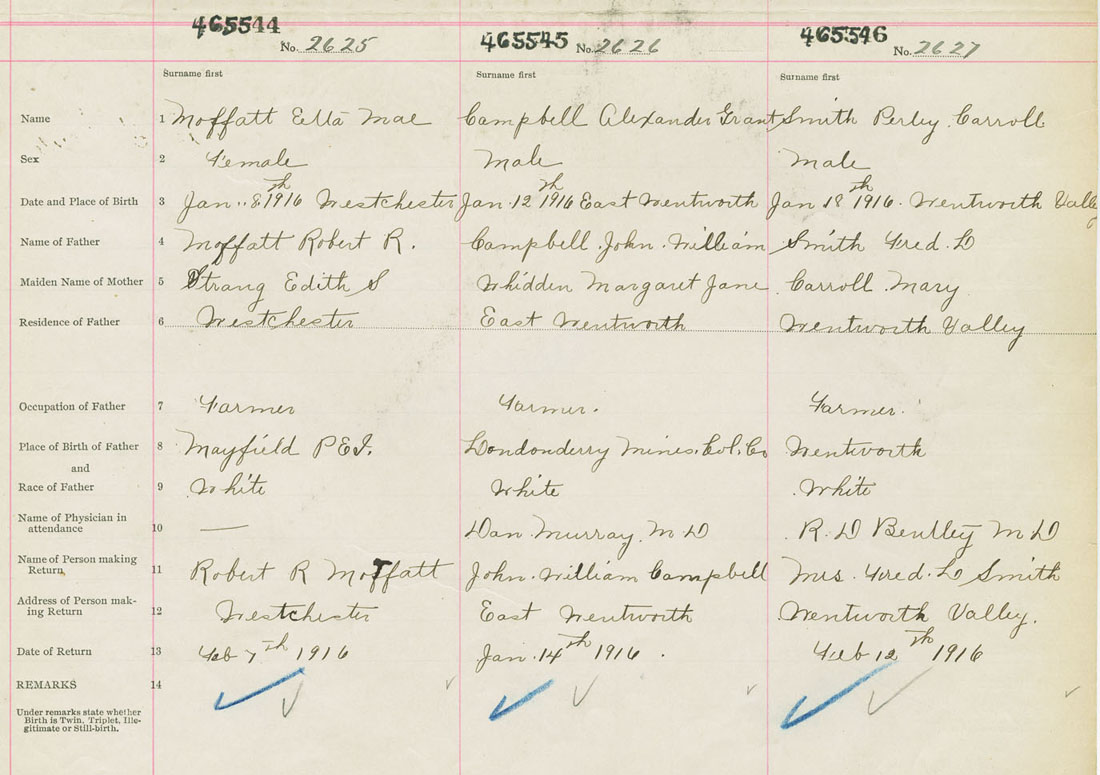 465544 No. 2625 465545 No. 2626 465546 No. 2627
Surname first Surname first Surname first
Name 1 Moffatt Etta Mae Campbell Alexander Grant Smith Perley Carroll
Sex 2 Female Male Male
Date and Place of Birth 3 Jan. 8th 1916 Westchester Jan. 12th 1916 East Wentworth Jan 18th 1916. Wentworth Valley
Name of Father 4 Moffatt Robert R. Campbell John William Smith Fred. D
Maiden Name of Mother 5 Strang Edith S Whidden Margaret Jane Carroll Mary
Residence of Father 6 Westchester East Wentworth Wentworth Valley
Occupation of Father 7 Farmer Farmer. Farmer.
Place of Birth of Father 8 Mayfield P.E.I. Londonderry Mines. Col. Co Wentworth
and
Race of Father 9 White White White
Name of Physician in
attendance 10 — Dan Murray M D R. D Bentley M D
Name of Person making
Return 11 Robert R Moffatt John William Campbell Mrs. Fred. D Smith
Address of Person mak-
ing Return 12 Westchester East Wentworth Wentworth Valley.
Date of Return 13 Feb 7th 1916 Jan. 14th 1916. Feb 12th 1916
REMARKS 14
Under remarks state whether
Birth is Twin, Triplet, Ille-
gitimate or Still-birth.